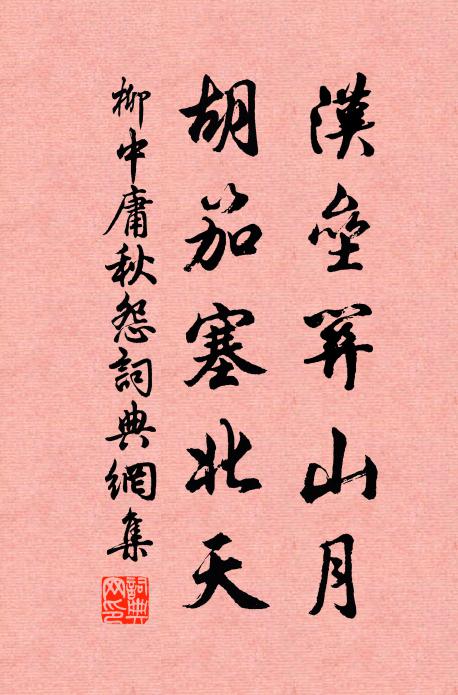 漢壘關山月
胡笳塞北天
柳中庸秋怨詞典網集
詞典
网印